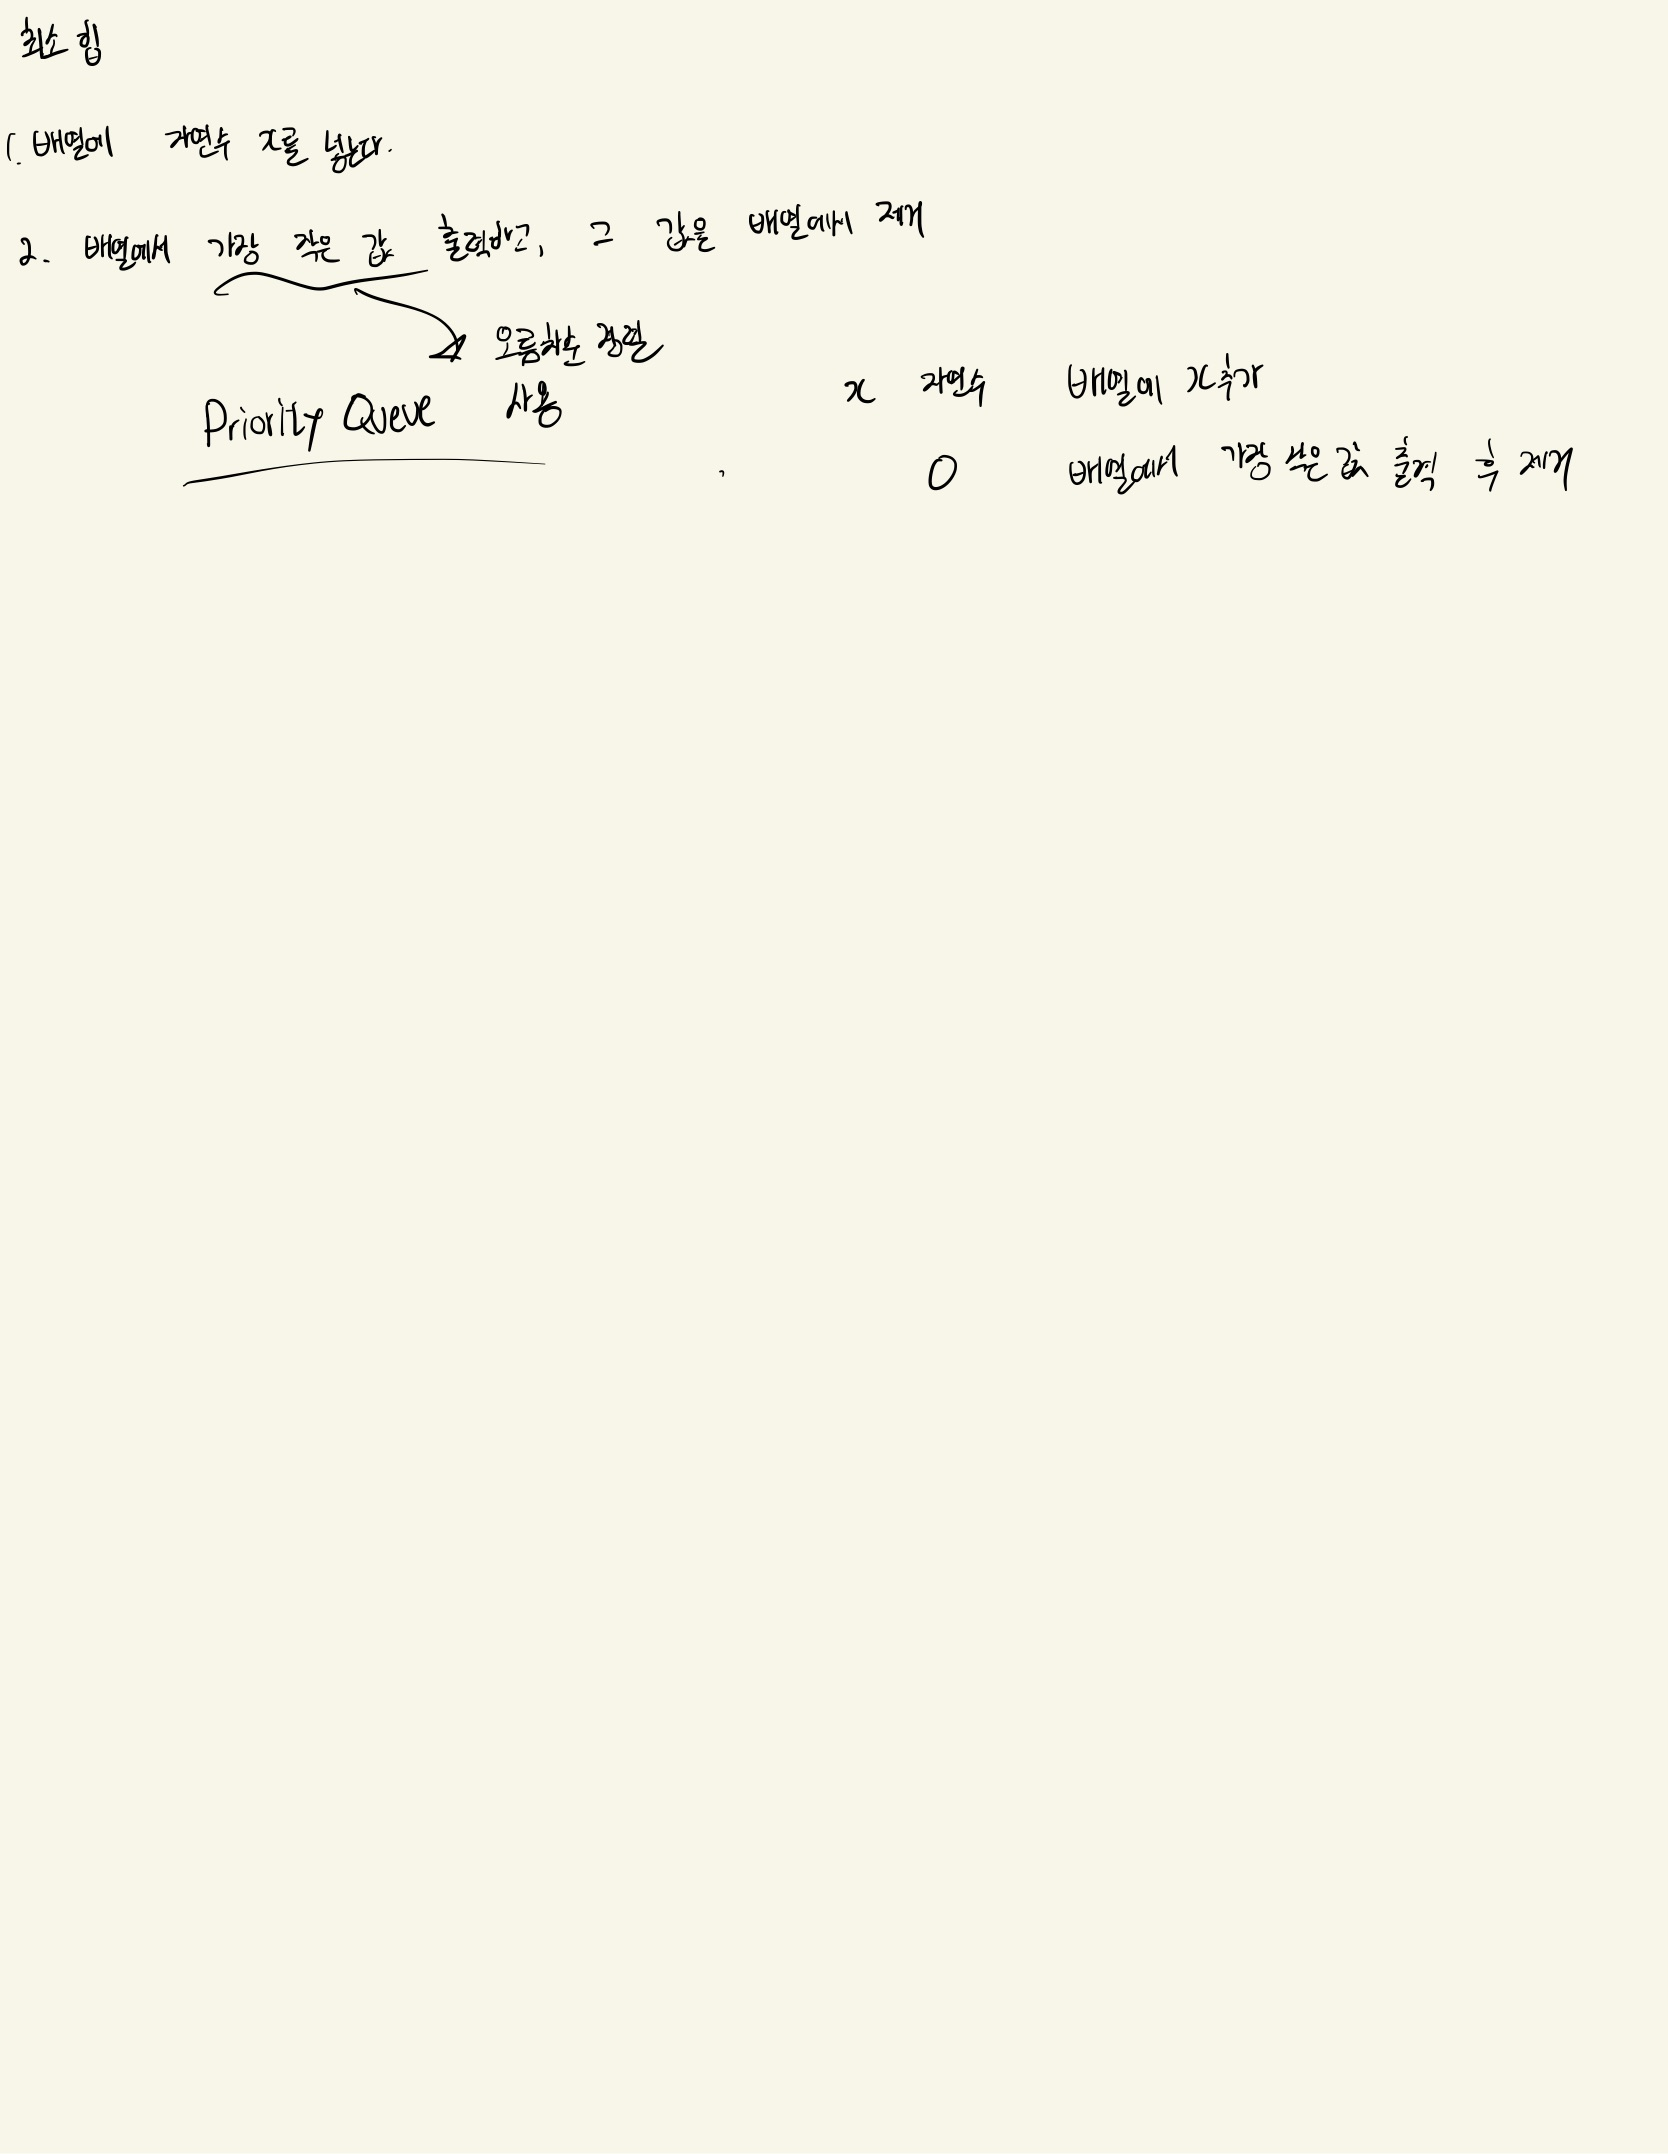 최소 힙
1. 배열에 자연수 x를 넣는다.
2. 배열에서 가장 작은 값 출력하고, 그 값을 배열에서 제거
오름차순 정렬
Priority Queue 사용
x 자연수 배열에 x추가
0 배열에서 가장 작은 값 출력 후 제거